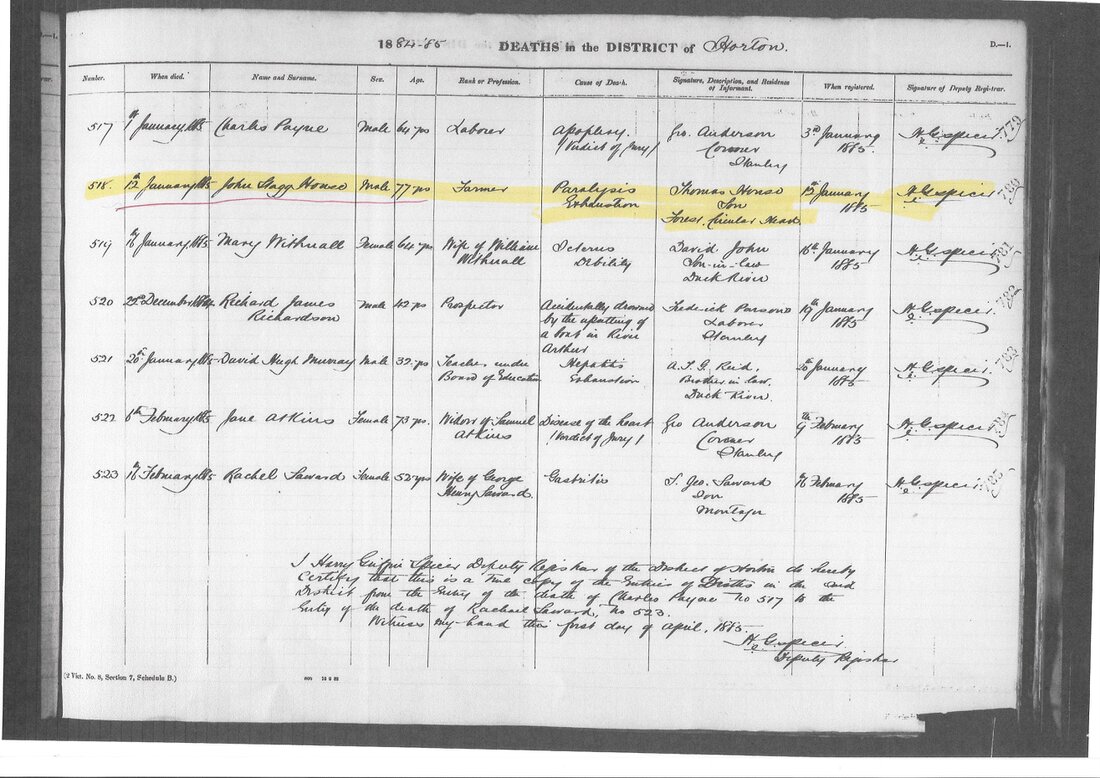 1884-85 DEATHS in the DISTRICT of Horton. D.—1.
Number. When died. Name and Surname. Sex. Age. Rank or Profession. Cause of Death. Signature, Description, and Residence of Informant. When registered. Signature of Deputy Registrar.
517 January 1885 Charles Payne Male 64 yrs Laborer Apoplexy Geo. Anderson 3rd January H. G. Spicer 779
(Verdict of Jury) Coroner 1885.
Stanley
518. 12th January 1885 John Stagg House Male 77 yrs Farmer Paralysis Thomas House January H. G. Spicer 780
Exhaustion Son 1885
Forest, Circular Head
519 January 1885 Mary Withnall Female 64 yrs Wife of William Icterus David John 16th January H. G. Spicer 781
Withnall Debility Son-in-law 1885
Duck River
520 December 1884 Richard James Male 42 yrs Prospector Accidentally drowned Frederick Parsons 19th January H. G. Spicer. 782
Richardson by the upsetting of Laborer 1885
a boat in River Stanley
Arthur
521 20th January 1885 David Hugh Murray Male 32 yrs Teacher under Hepatitis Reid January H. G. Spicer. 783
Board of Education Exhaustion Brother in law. 1885
Duck River.
522 6th February 1885 Jane Atkins Female 73 yrs Widow of Samuel Disease of the heart Geo Anderson 9th February H. G. Spicer 784
Atkins (Verdict of Jury) Coroner 1885
Stanley
523 February 1885 Rachel Saward Female 52 yrs Wife of George Gastritis Geo. Saward February H. G. Spicer 785
Henry Saward. Son 1885
Montagu
I Harry Griffin Spicer Deputy Registrar of the District of Horton do hereby
Certify that this is a true copy of the Entries of Deaths in the said
District from the Entry of the death of Charles Payne No 517 to the
Entry of the death of Rachael Saward, No 523.
Witness my hand this first day of April, 1885.
H. G. Spicer
Deputy Registrar
(2 Vict. No. 8, Section 7, Schedule B.)